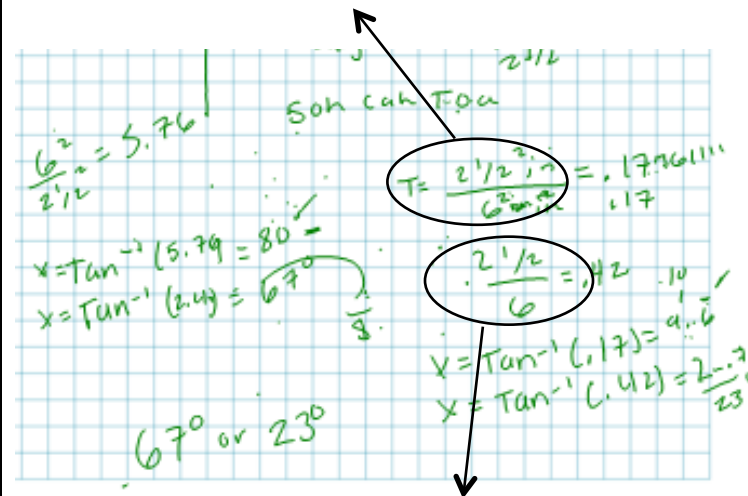 2 1/2
Soh cah Toa
6² / 2 1/2² = 5.76
T= 2 1/2² in / 6² = .1736111
.17
x=Tan⁻¹ (5.79 = 80
x=Tan⁻¹ (2.4) = 67°
2 1/2 / 6 = .42
x=Tan⁻¹(.17)= 9..6
x=Tan⁻¹(.42) =
23
67° or 23°